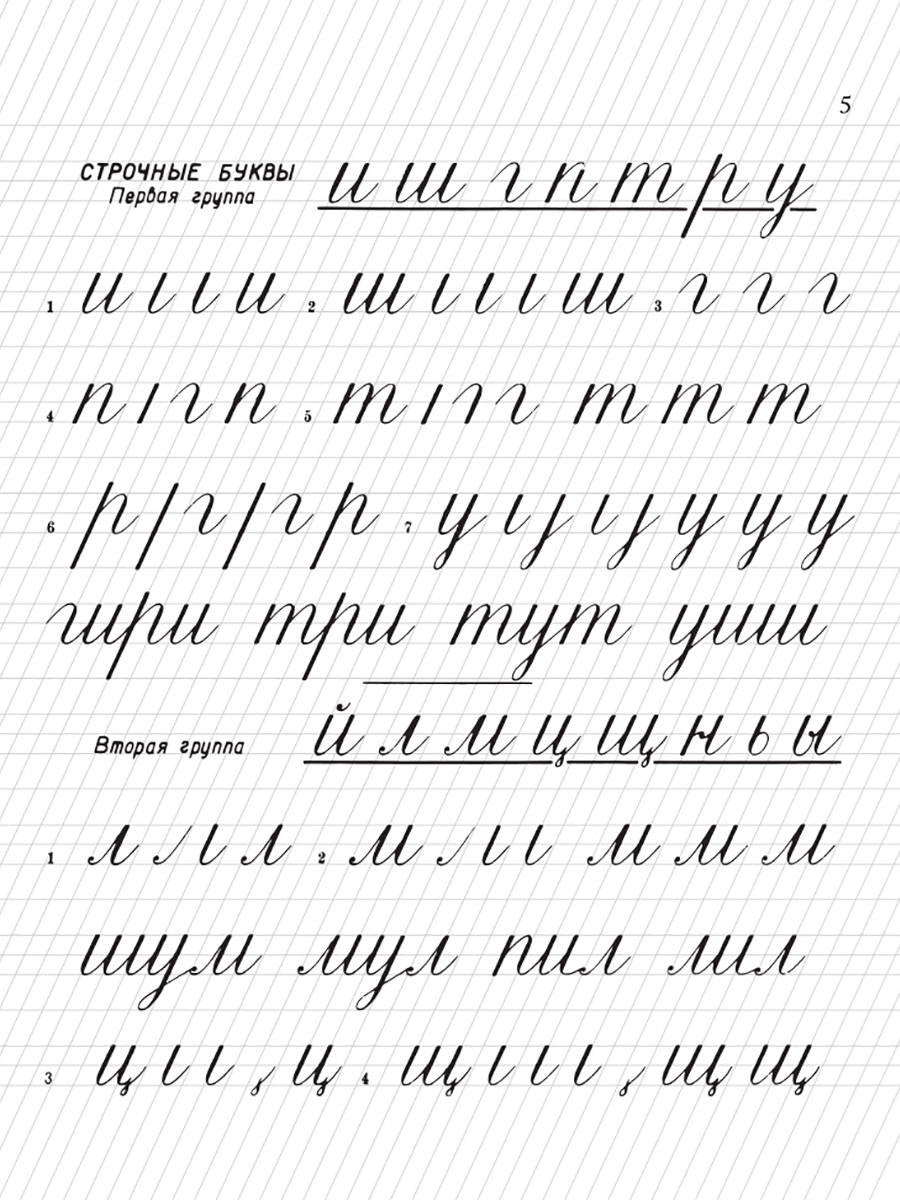 5
СТРОЧНЫЕ БУКВЫ и ш г п т р у
Первая группа
1 и и 2 ш ш 3 г г г
4 п г п 5 т г т т т
6 р г г р 7 у у у у
гири три тут уши
Вторая группа й л м ц щ н ь ы
1 л л 2 м м м м
шум мул пил лил
3 ц ц 4 щ щ щ